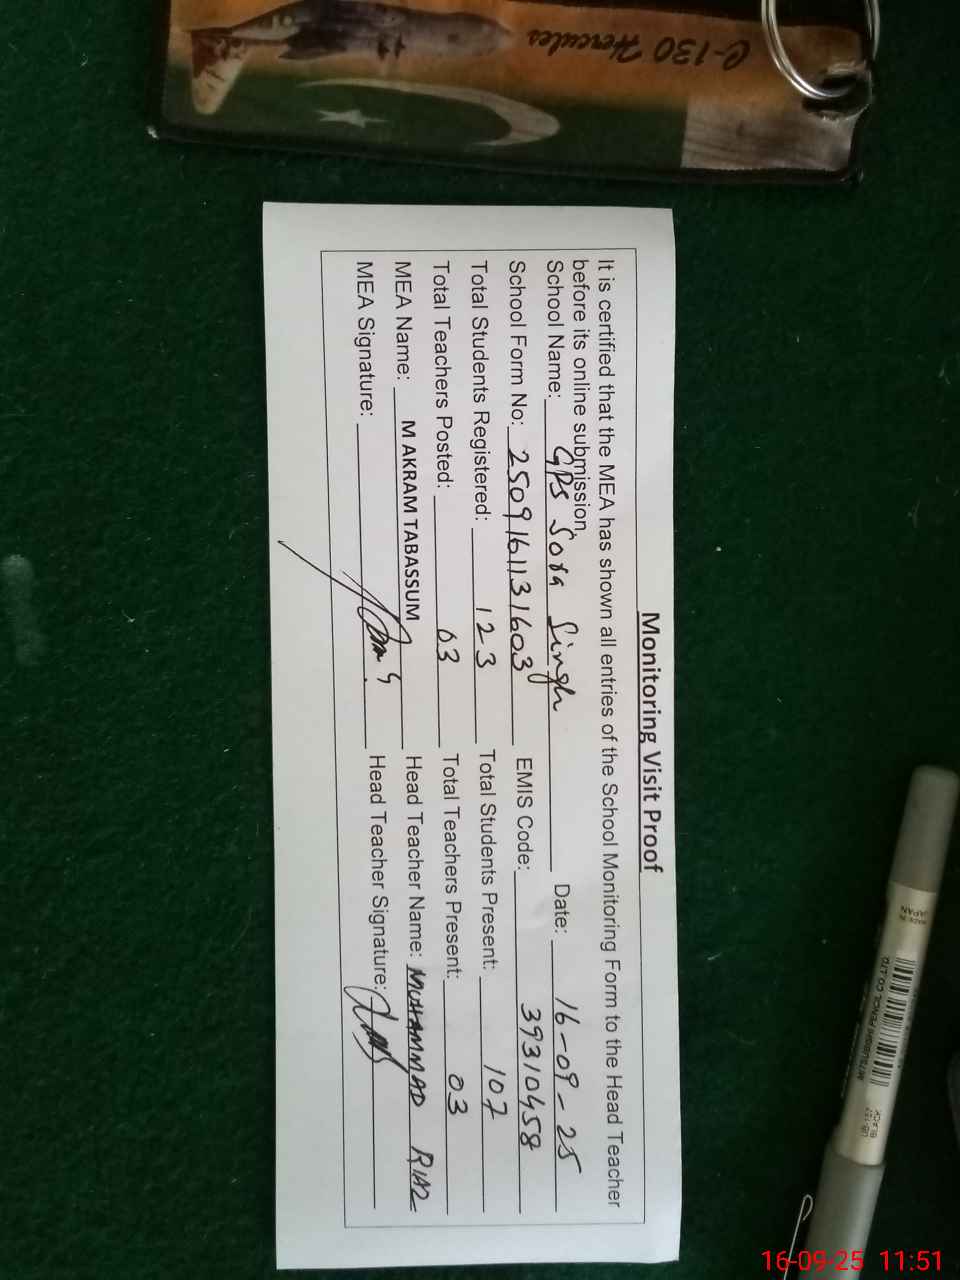 C-130 Hercules
Monitoring Visit Proof
It is certified that the MEA has shown all entries of the School Monitoring Form to the Head Teacher
before its online submission.
School Name: GPS Sota Singh Date: 16-09-25
School Form No: 2509161131603 EMIS Code: 39310458
Total Students Registered: 123 Total Students Present: 107
Total Teachers Posted: 03 Total Teachers Present: 03
MEA Name: M AKRAM TABASSUM Head Teacher Name: MUHAMMAD RIAZ
MEA Signature: Head Teacher Signature:
MADE IN
JAPAN
MITSUBISHI PENCIL CO. LTD.
BLACK
UB-157
16-09-25 11:51